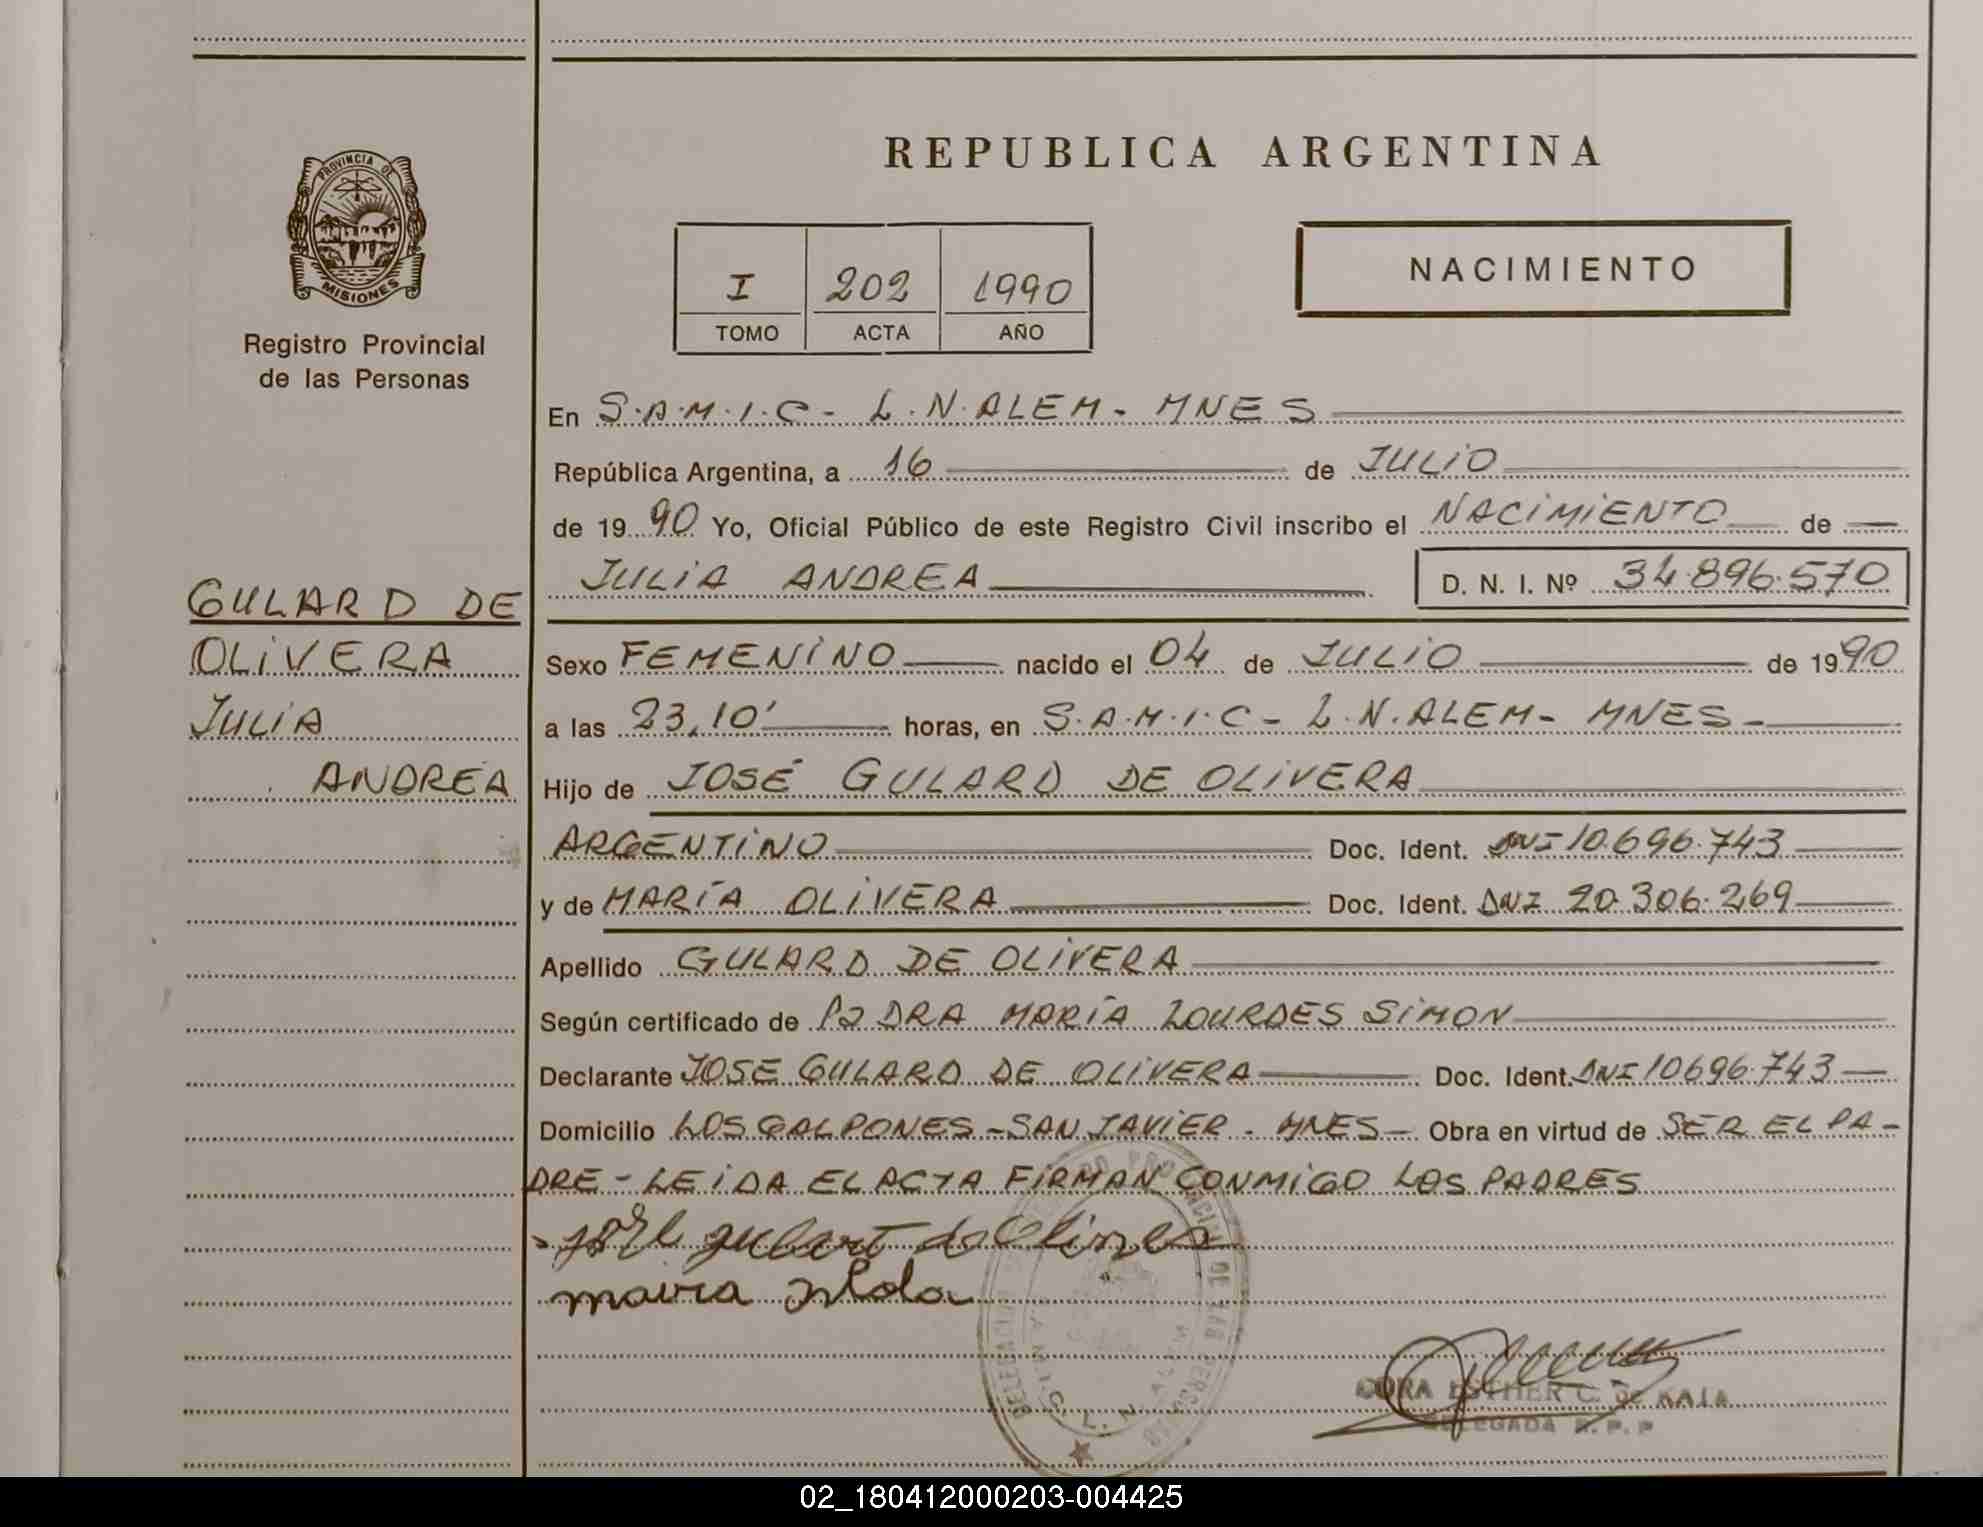 REPUBLICA ARGENTINA
PROVINCIA DE
MISIONES
Registro Provincial
de las Personas
I 202 1990
TOMO ACTA AÑO
NACIMIENTO
En S.A.M.I.C - L.N.ALEM - MNES
República Argentina, a 16 de JULIO
de 1990 Yo, Oficial Público de este Registro Civil inscribo el NACIMIENTO de
JULIA ANDREA D. N. I. Nº 34.896.570
GULARD DE
OLIVERA
JULIA
ANDREA
Sexo FEMENINO nacido el 04 de JULIO de 1990
a las 23,10' horas, en S.A.M.I.C - L.N.ALEM - MNES -
Hijo de JOSÉ GULARD DE OLIVERA
ARGENTINO Doc. Ident. DNI 10.696.743
y de MARÍA OLIVERA Doc. Ident. DNI 20.306.269
Apellido GULARD DE OLIVERA
Según certificado de DRA MARÍA LOURDES SIMON
Declarante JOSÉ GULARD DE OLIVERA Doc. Ident. DNI 10696.743
Domicilio LOS GALPONES - SAN JAVIER - MNES - Obra en virtud de SER EL PA-
DRE - LEIDA EL ACTA FIRMAN CONMIGO LOS PADRES
CORA ESTHER C. de KAIA
DELEGADA R. P. P
02_180412000203-004425